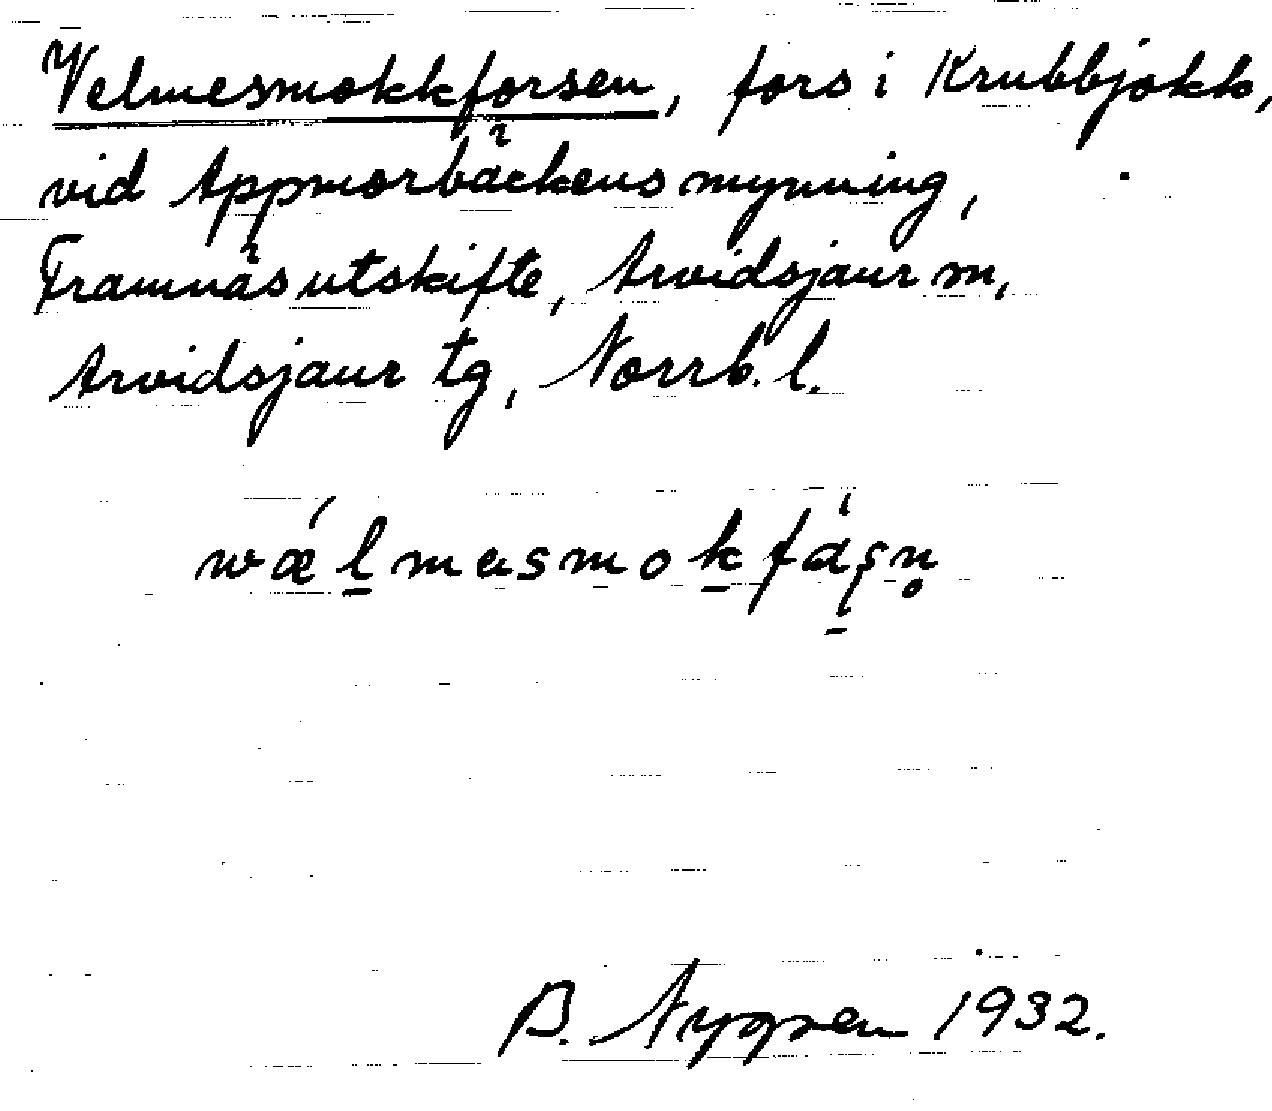 Velmesmokkforsen, fors i Krubbjokk,
vid Appmorbäckens mynning,
Framnäs utskifte, Arvidsjaur m,
Arvidsjaur tg, Norrb. l.
B. Nygren 1932.